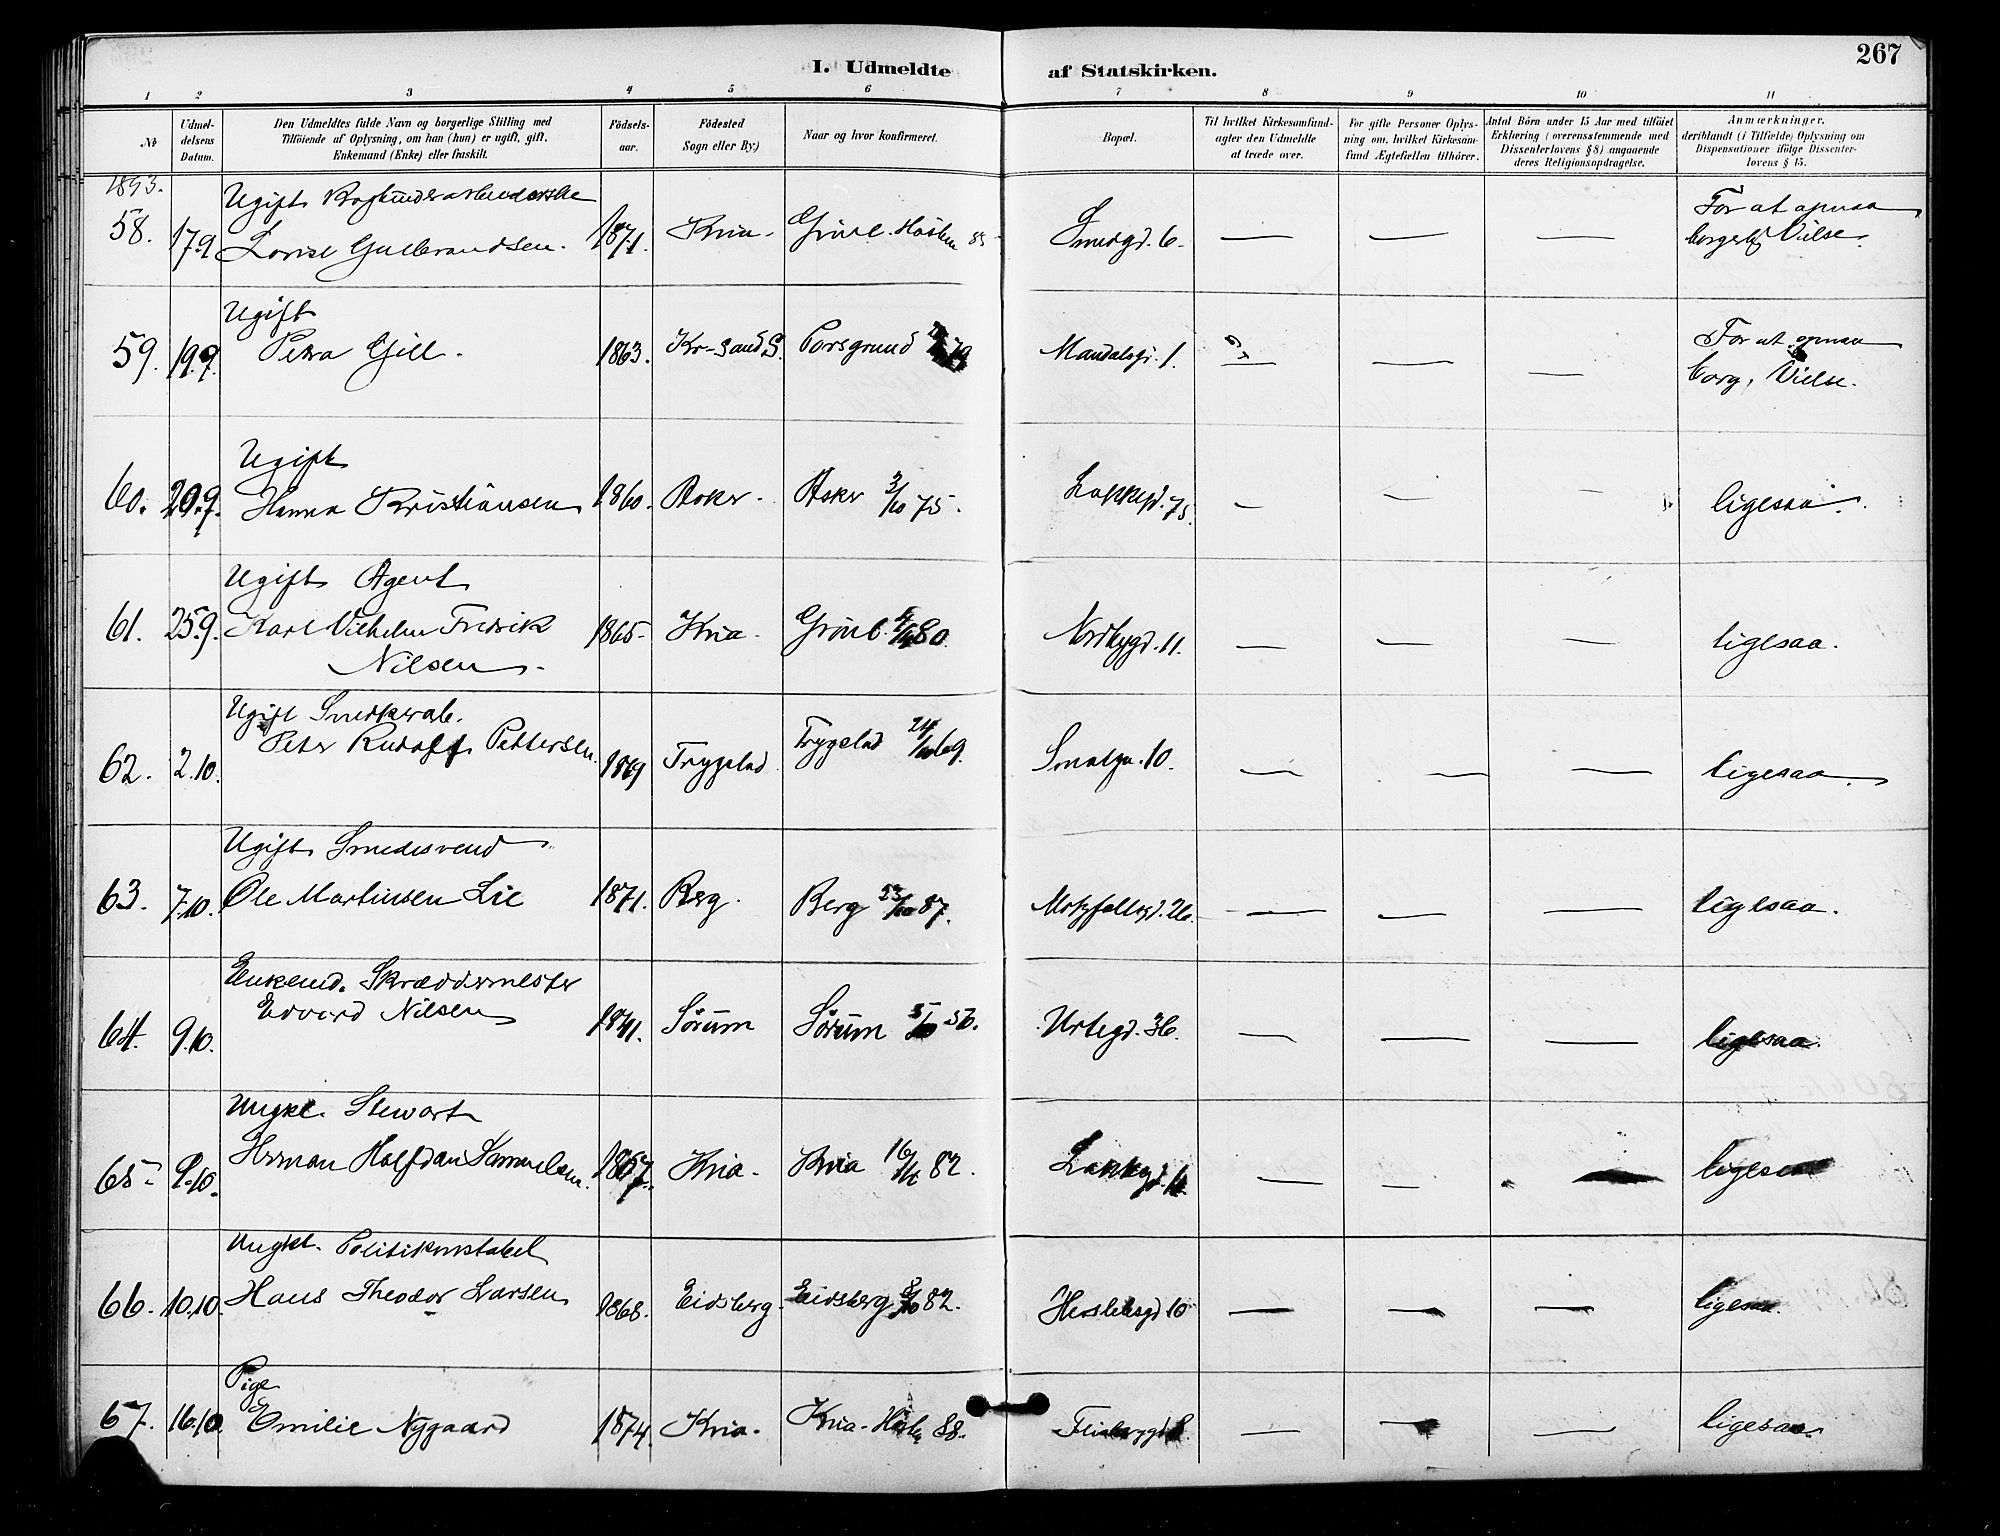 267
I. Udmeldte af Statskirken.
1 2 3 4 5 6 7 8 9 10 11
No
Udmel-
delsens
Datum.
Den Udmeldtes fulde Navn og borgerlige Stilling med
Tilføiende af Oplysning, om han (hun) er ugift, gift,
Enkemand (Enke) eller fraskilt.
Fødsels-
aar.
Fødested
Sogn eller By.)
Naar og hvor konfirmeret.
Bopæl.
Til hvilket Kirkesamfund
agter den Udmeldte
at træde over.
For gifte Personer Oplys-
ning om, hvilket Kirkesam-
fund Ægtefællen tilhører.
Antal Børn under 15 Aar med tilføiet
Erklæring (overensstemmende med
Dissenterlovens § 8) angaaende
deres Religionsopdragelse.
Anmærkninger,
deriblandt (i Tilfælde) Oplysning om
Dispensationer ifølge Dissenter-
lovens § 15.
1893.
Ugift
58. 17.9 Lovise Gulbrandsen. 1871. Kria. Grønl. Høsten 85 Smedgd. 6. — — — For at opnaa
borgerlig Vielse.
Ugift
59. 19.9. Petra Gjill. 1863. Kr-sand S. Porsgrund 79 Mandalsg. 1. — — — For at opnaa
borg. Vielse.
Ugift
60. 20.9. Hanna Kristiansen 1860. Asker. Asker 3/10 75. Lakkegd. 75. — — — ligesaa.
Ugift Agent
61. 25.9. Karl Vilhelm Fredrik 1865. Kria. Grønl. 80. Nordbygd. 11. — — — ligesaa.
Nilsen.
Ugift Snedkerarb.
62. 2.10. Peter Rudolf Pettersen. Trygstad Trygstad 24/10 69. Smalga. 10. — — — ligesaa.
Ugift Smedesvend
63. 7.10. Ole Martinsen Lie 1871. Berg. Berg 23/10 87. Motzfeltsgd. 26. — — — ligesaa.
Enkemd. Skræddermester
64. 9.10. Edvard Nilsen 1841. Sørum Sørum 5/10 56. Urtegd. 36. — — — ligesaa.
Ungkl. Stewart
65. 9.10. Herman Halfdan Samuelsen. 1867. Kria. Kria 82. Lakkegd. — — — ligesaa
Ungkl. Politikonstabel
66. 10.10. Hans Theodor Larsen 1868. Eidsberg. Eidsberg 8/10 82. Heslebsgd 10 — — — ligesaa.
Pige
67. 16.10 Emilie Nygaard 1874. Kria. Kria. 88. — — — ligesaa.